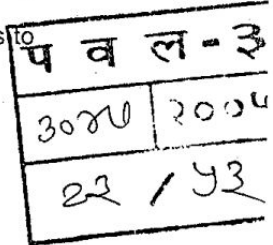 s to
प व ल - ३
३०४७ २००५
२३ / ५३